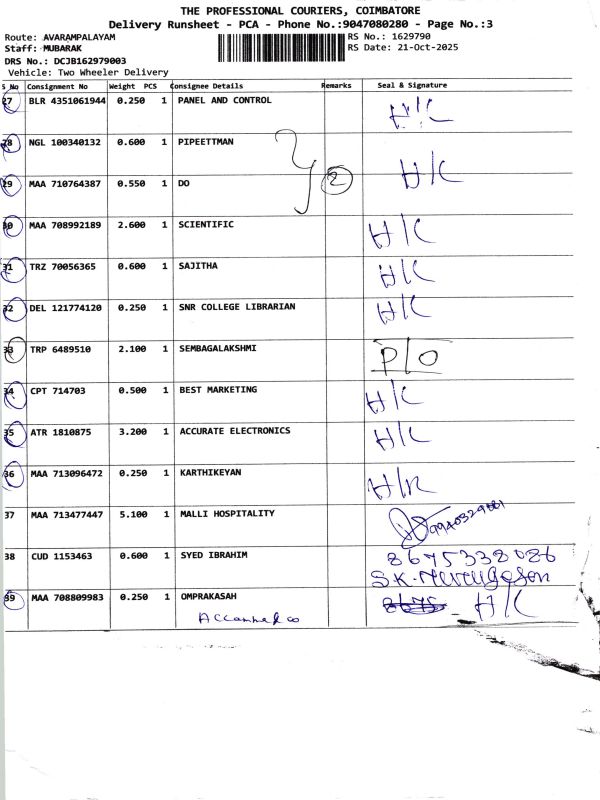 THE PROFESSIONAL COURIERS, COIMBATORE
Delivery Runsheet - PCA - Phone No.:9047080280 - Page No.:3
Route: AVARAMPALAYAM RS No.: 1629790
Staff: MUBARAK RS Date: 21-Oct-2025
DRS No.: DCJB162979003
Vehicle: Two Wheeler Delivery
S No Consignment No Weight PCS Consignee Details Remarks Seal & Signature
27 BLR 4351061944 0.250 1 PANEL AND CONTROL H/C
28 NGL 100340132 0.600 1 PIPEETTMAN
29 MAA 710764387 0.550 1 DO 2 H/C
30 MAA 708992189 2.600 1 SCIENTIFIC H/C
31 TRZ 70056365 0.600 1 SAJITHA H/C
32 DEL 121774120 0.250 1 SNR COLLEGE LIBRARIAN H/C
33 TRP 6489510 2.100 1 SEMBAGALAKSHMI P/O
34 CPT 714703 0.500 1 BEST MARKETING H/C
35 ATR 1810875 3.200 1 ACCURATE ELECTRONICS H/C
36 MAA 713096472 0.250 1 KARTHIKEYAN
37 MAA 713477447 5.100 1 MALLI HOSPITALITY
38 CUD 1153463 0.600 1 SYED IBRAHIM 8675332086
39 MAA 708809983 0.250 1 OMPRAKASAH H/C